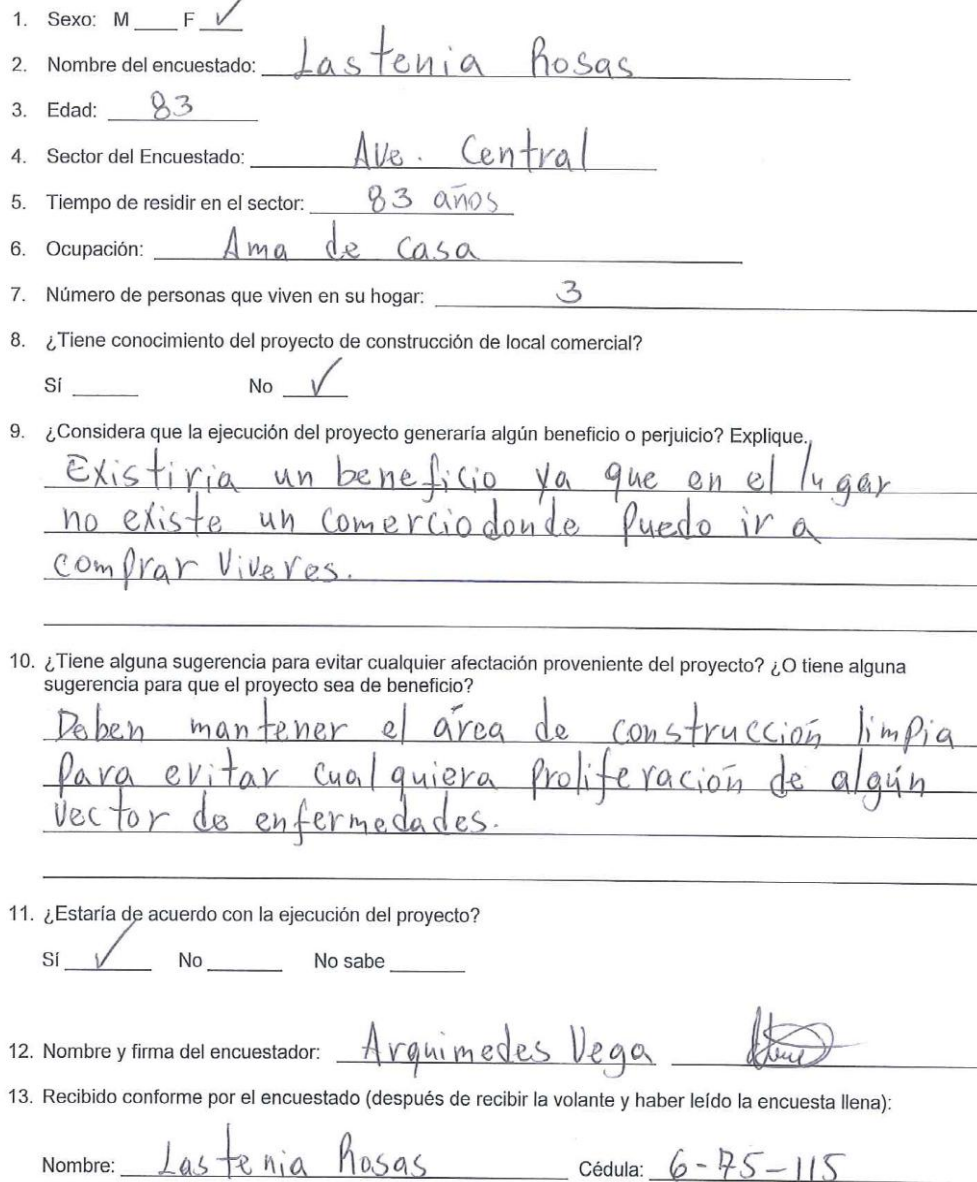 1. Sexo: M____ F ✓
2. Nombre del encuestado: Lastenia Rosas
3. Edad: 83
4. Sector del Encuestado: Ave. Central
5. Tiempo de residir en el sector: 83 años
6. Ocupación: Ama de casa
7. Número de personas que viven en su hogar: 3
8. ¿Tiene conocimiento del proyecto de construcción de local comercial?
Sí ____ No ✓
9. ¿Considera que la ejecución del proyecto generaría algún beneficio o perjuicio? Explique.
Existiria un beneficio ya que en el lugar
no existe un comercio donde puedo ir a
comprar viveres.
10. ¿Tiene alguna sugerencia para evitar cualquier afectación proveniente del proyecto? ¿O tiene alguna
sugerencia para que el proyecto sea de beneficio?
Deben mantener el área de construcción limpia
para evitar cualquiera proliferación de algún
vector de enfermedades.
11. ¿Estaría de acuerdo con la ejecución del proyecto?
Sí ✓ No ____ No sabe ____
12. Nombre y firma del encuestador: Arquimedes Vega
13. Recibido conforme por el encuestado (después de recibir la volante y haber leído la encuesta llena):
Nombre: Lastenia Rosas Cédula: 6-75-115